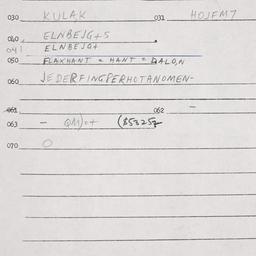 030 KULAK 031 HOJFM7
040 ELNBEJG+S
041 ELNBEJG+
050 FLAXHANT = HANT = BALO,N
060 JEDERFINGPERHOTANOMEN-
061 062 -
063 - QM)o+ (85325z
070 O